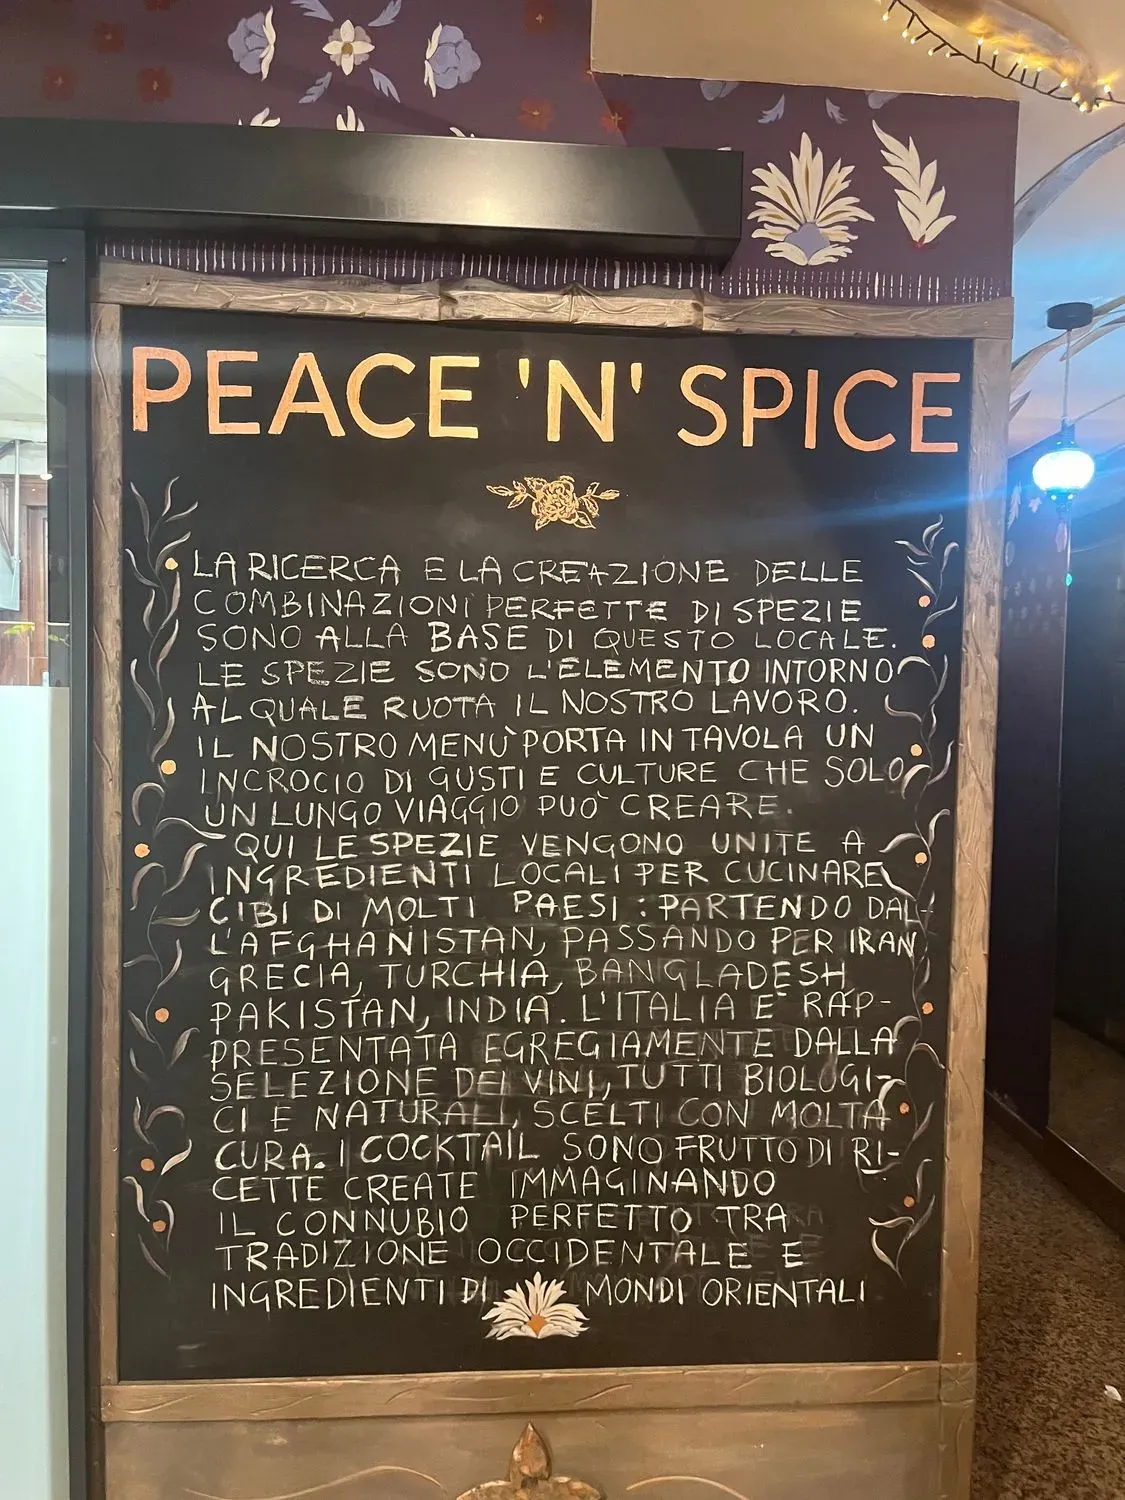 PEACE 'N' SPICE
LA RICERCA E LA CREAZIONE DELLE
COMBINAZIONI PERFETTE DI SPEZIE
SONO ALLA BASE DI QUESTO LOCALE.
LE SPEZIE SONO L'ELEMENTO INTORNO
AL QUALE RUOTA IL NOSTRO LAVORO.
IL NOSTRO MENÙ PORTA IN TAVOLA UN
INCROCIO DI GUSTI E CULTURE CHE SOLO
UN LUNGO VIAGGIO PUO' CREARE.
QUI LE SPEZIE VENGONO UNITE A
INGREDIENTI LOCALI PER CUCINARE
CIBI DI MOLTI PAESI: PARTENDO DAL-
L'AFGHANISTAN, PASSANDO PER IRAN
GRECIA, TURCHIA, BANGLADESH
PAKISTAN, INDIA. L'ITALIA E' RAP-
PRESENTATA EGREGIAMENTE DALLA
SELEZIONE DEI VINI, TUTTI BIOLOGI-
CI E NATURALI, SCELTI CON MOLTA
CURA. I COCKTAIL SONO FRUTTO DI RI-
CETTE CREATE IMMAGINANDO
IL CONNUBIO PERFETTO TRA
TRADIZIONE OCCIDENTALE E
INGREDIENTI DI MONDI ORIENTALI